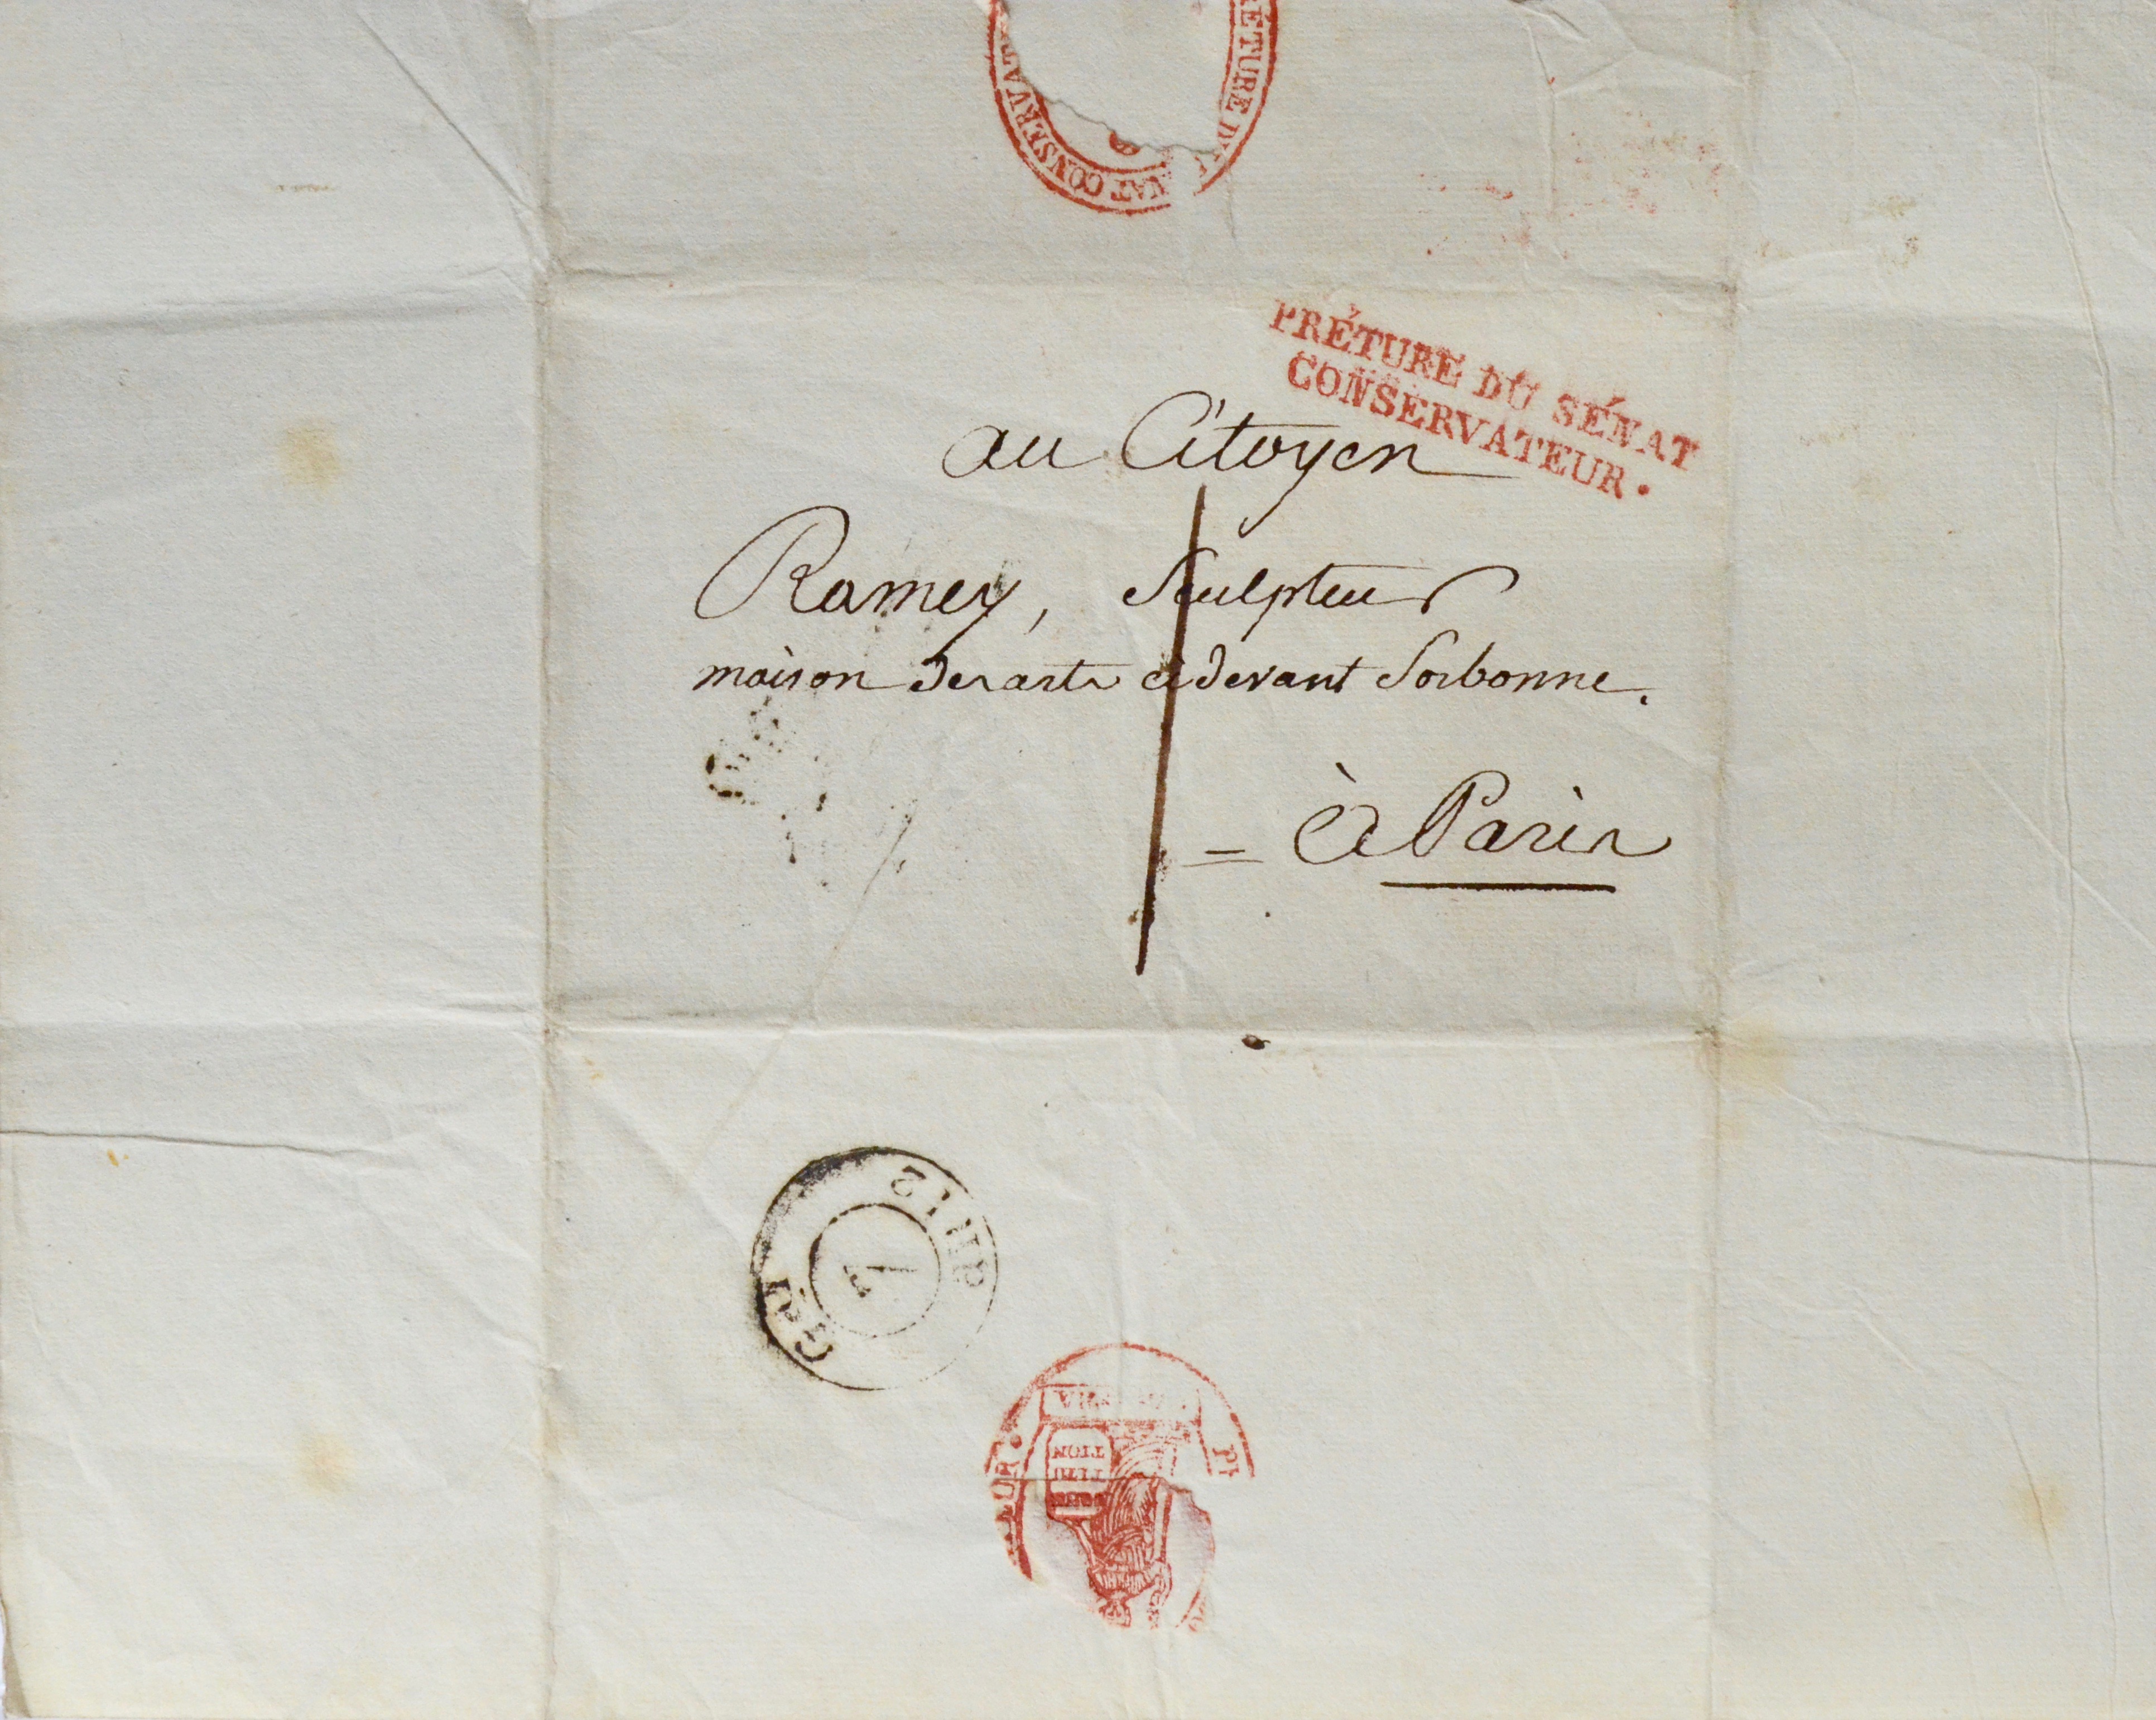 CONSERVAT
PRÉTURE DU SÉNAT
CONSERVATEUR.
au Citoyen
Ramey, Sculpteur
maison des arts ci devant Sorbonne.
= à Paris